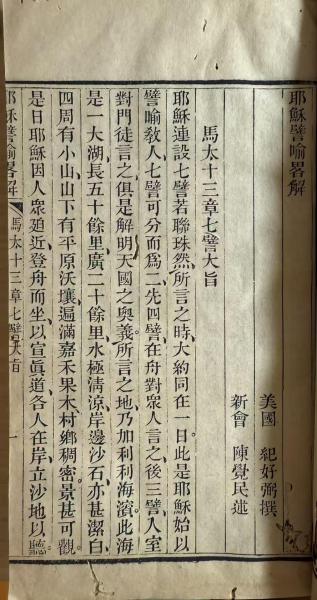 耶穌譬喻畧解
美國 紀好弼撰
新會 陳覺民述
馬太十三章七譬大旨
耶穌連設七譬若聯珠然所言之時大約同在一日此是耶穌始以
譬喻敎人七譬可分而爲二先四譬在舟對衆人言之後三譬入室
對門徒言之俱是解明天國之奧義所言之地乃加利利海濱此海
是一大湖長五十餘里廣二十餘里水極淸涼岸邊沙石亦甚潔白
四周有小山山下有平原沃壤遍滿嘉禾果木村鄉稠密景甚可觀
是日耶穌因人衆廹近登舟而坐以宣眞道各人在岸立沙地以聽
耶穌譬喻畧解 馬太十三章七譬大旨 一